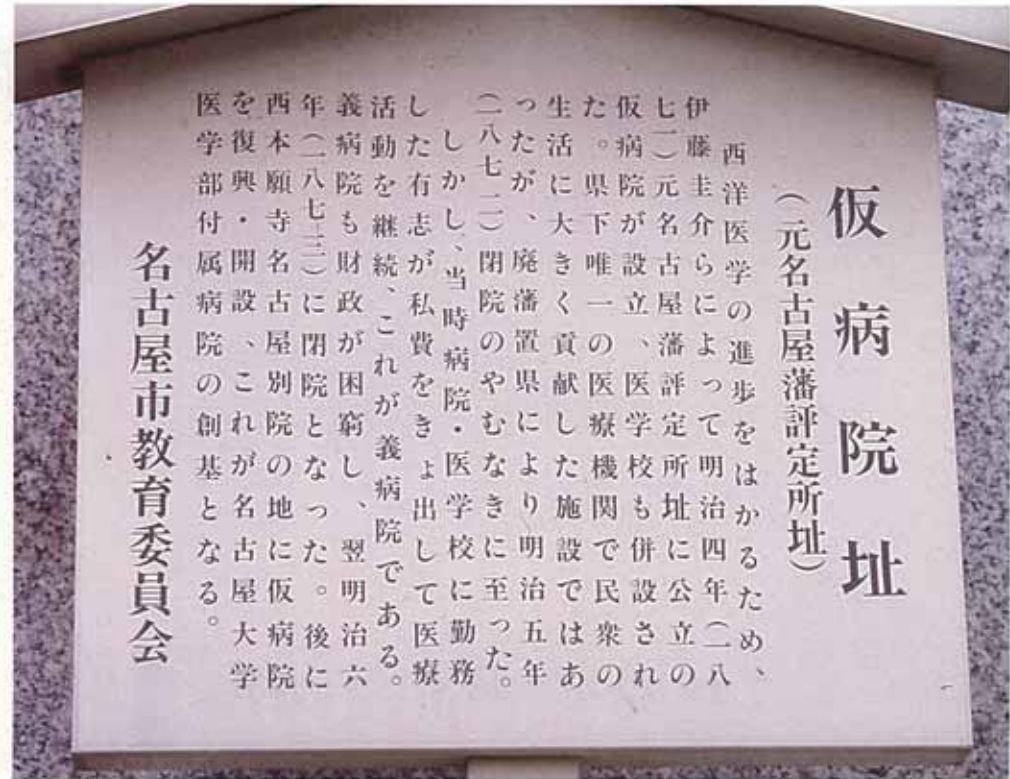 仮病院址
（元名古屋藩評定所址）
西洋医学の進歩をはかるため、
伊藤圭介らによって明治四年（一八
七一）元名古屋藩評定所址に公立の
仮病院が設立、医学校も併設され
た。県下唯一の医療機関で民衆の
生活に大きく貢献した施設ではあ
ったが、廃藩置県により明治五年
（一八七二）閉院のやむなきに至った。
しかし、当時病院・医学校に勤務
した有志が私費をきょ出して医療
活動を継続、これが義病院である。
義病院も財政が困窮し、翌明治六
年（一八七三）に閉院となった。後に
西本願寺名古屋別院の地に仮病院
を復興・開設、これが名古屋大学
医学部付属病院の創基となる。
名古屋市教育委員会